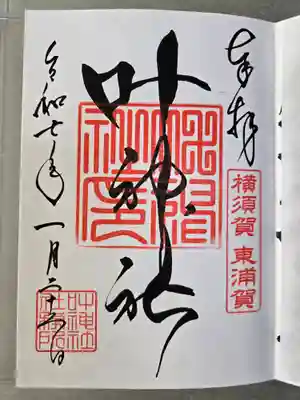 奉拝
横須賀 東浦賀
叶神社
令和七年 一月二十五日
叶神社社務所